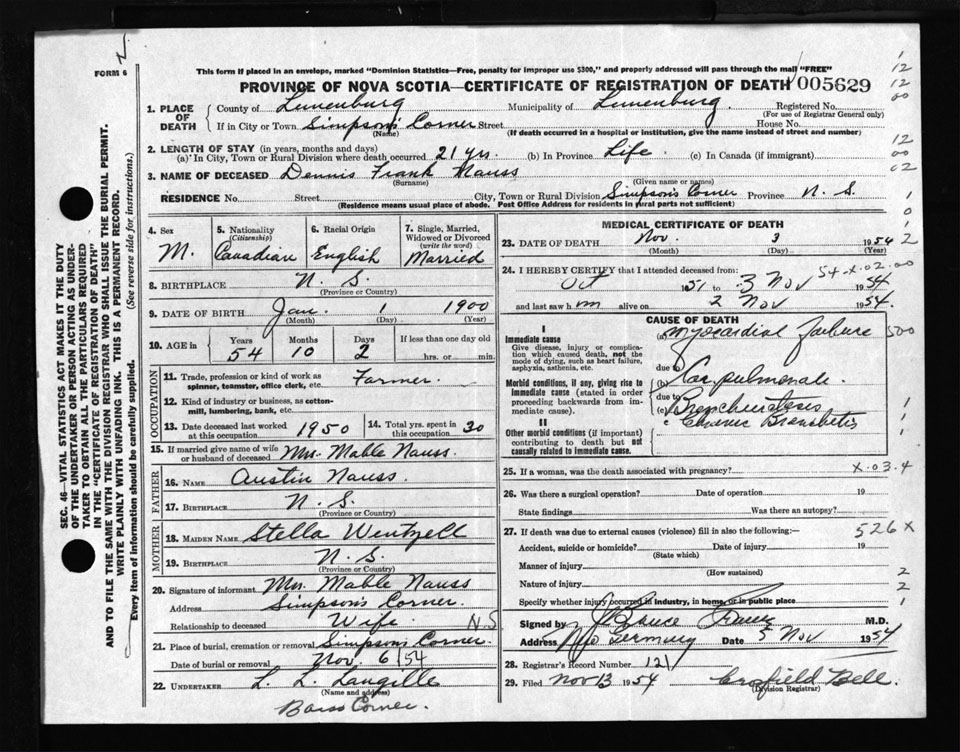 FORM 6
This form if placed in an envelope, marked "Dominion Statistics—Free, penalty for improper use $300," and properly addressed will pass through the mail "FREE"
PROVINCE OF NOVA SCOTIA—CERTIFICATE OF REGISTRATION OF DEATH 005629
SEC. 46—VITAL STATISTICS ACT MAKES IT THE DUTY
OF THE UNDERTAKER OR PERSON ACTING AS UNDER-
TAKER TO OBTAIN ALL THE PARTICULARS REQUIRED
IN THE "CERTIFICATE OF REGISTRATION OF DEATH"
AND TO FILE THE SAME WITH THE DIVISION REGISTRAR WHO SHALL ISSUE THE BURIAL PERMIT.
WRITE PLAINLY WITH UNFADING INK. THIS IS A PERMANENT RECORD.
Every item of information should be carefully supplied. (See reverse side for instructions.)
1. PLACE OF DEATH County of Lunenburg Municipality of Lunenburg. Registered No.
(For use of Registrar General only)
If in City or Town Simpson's Corner Street House No.
(Name) (If death occurred in a hospital or institution, give the name instead of street and number)
2. LENGTH OF STAY (in years, months and days)
(a) In City, Town or Rural Division where death occurred 21 yrs. (b) In Province Life. (c) In Canada (if immigrant)
3. NAME OF DECEASED Dennis Frank Nauss
(Surname) (Given name or names)
RESIDENCE No. Street City, Town or Rural Division Simpson's Corner Province N. S.
(Residence means usual place of abode. Post Office Address for residents in rural parts not sufficient)
4. Sex M.
5. Nationality (Citizenship) Canadian
6. Racial Origin English
7. Single, Married, Widowed or Divorced (write the word) Married
8. BIRTHPLACE N. S.
(Province or Country)
9. DATE OF BIRTH Jan. 1 1900
(Month) (Day) (Year)
10. AGE in Years Months Days If less than one day old
54 10 2 hrs. or min.
OCCUPATION
11. Trade, profession or kind of work as spinner, teamster, office clerk, etc. Farmer.
12. Kind of industry or business, as cotton-mill, lumbering, bank, etc.
13. Date deceased last worked at this occupation 1950 14. Total yrs. spent in this occupation 30
15. If married give name of wife or husband of deceased Mrs. Mable Nauss.
FATHER
16. NAME Austin Nauss.
17. BIRTHPLACE N. S.
(Province or Country)
MOTHER
18. MAIDEN NAME Stella Wentzell
19. BIRTHPLACE N. S.
(Province or Country)
20. Signature of informant Mrs. Mable Nauss
Address Simpson's Corner.
Relationship to deceased Wife. N.S
21. Place of burial, cremation or removal Simpson's Corner.
Date of burial or removal Nov. 6/54
22. UNDERTAKER L. L. Langille
(Name and address)
Barss Corner.
MEDICAL CERTIFICATE OF DEATH
23. DATE OF DEATH Nov. 3 1954
(Month) (Day)
24. I HEREBY CERTIFY that I attended deceased from:
Oct 1951 to 3 Nov 1954
and last saw him alive on 2 Nov 1954.
CAUSE OF DEATH
I
Immediate cause
Give disease, injury or complication which caused death, not the mode of dying, such as heart failure, asphyxia, asthenia, etc.
(a) Myocardial failure 500
due to
Morbid conditions, if any, giving rise to immediate cause (stated in order proceeding backwards from immediate cause).
(b) Cor pulmonale.
due to
(c) Bronchiectasis
c Chronic Bronchitis
II
Other morbid conditions (if important) contributing to death but not causally related to immediate cause.
25. If a woman, was the death associated with pregnancy? X.03.4
26. Was there a surgical operation? Date of operation 19
State findings Was there an autopsy?
27. If death was due to external causes (violence) fill in also the following:— 526 X
Accident, suicide or homicide? Date of injury 19
(State which)
Manner of injury
(How sustained)
Nature of injury
Specify whether injury occurred in industry, in home, or in public place
Signed by Bruce M.D.
Address New Germany Date 5 Nov 1954
28. Registrar's Record Number 121
29. Filed Nov 13 1954 Crofield Bell.
(Division Registrar)